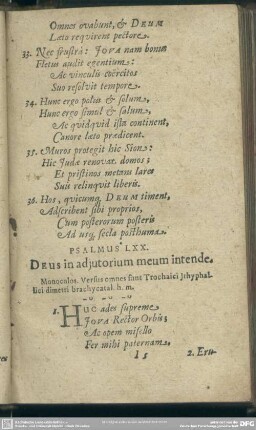 Omnes ovabunt, & DEUM
Læto reqvirent pectore.
33. Nec frustrà: JOVA nam bonus
Fletus audit egentium:
Ac vinculis coërcitos
Suo resolvit tempore.
34. Hunc ergo polus & solum,
Hunc ergo simul & salum,
Ac qvidqvid ista continent,
Canore læto prædicent.
35. Muros protegit hic Sion:
Hic Judæ renovat domos;
Et pristinos metam lares
Suis relinqvit liberis.
36. Hos, qvicunq; DEUM timent,
Adscribent sibi proprios,
Cum posterorum posteris
Ad usq; secla posthuma.
PSALMUS LXX.
DEUS in adjutorium meum intende.
Monocolos. Versus omnes sunt Trochaici Ithyphal-
lici dimetri brachycatal. h. m.
1. HUC ades supreme
JOVA Rector Orbis;
Ac opem misello
Fer mihi paternam.
I 5
2. Eru-